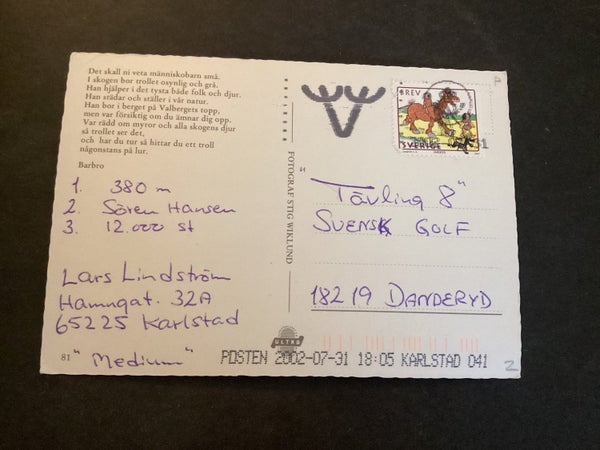 Det skall ni veta människobarn små.
I skogen bor trollet osynlig och grå.
Han hjälper i det tysta både folk och djur.
Han städar och ställer i vår natur.
Han bor i berget på Valbergets topp,
men var försiktig om du ämnar dig opp.
Var rädd om myror och alla skogens djur
så trollet ser det,
och har du tur så hittar du ett troll
någonstans på lur.
Barbro
1. 380 m
2. Sören Hansen
3. 12.000 st
Lars Lindström
Hamngat. 32A
65225 Karlstad
81
"Medium"
FOTOGRAF STIG WIKLUND
BREV
SVERIGE
"Tävling 8"
SVENSK GOLF
18219 DANDERYD
ULTRA
POSTEN 2002-07-31 18:05 KARLSTAD 041
2